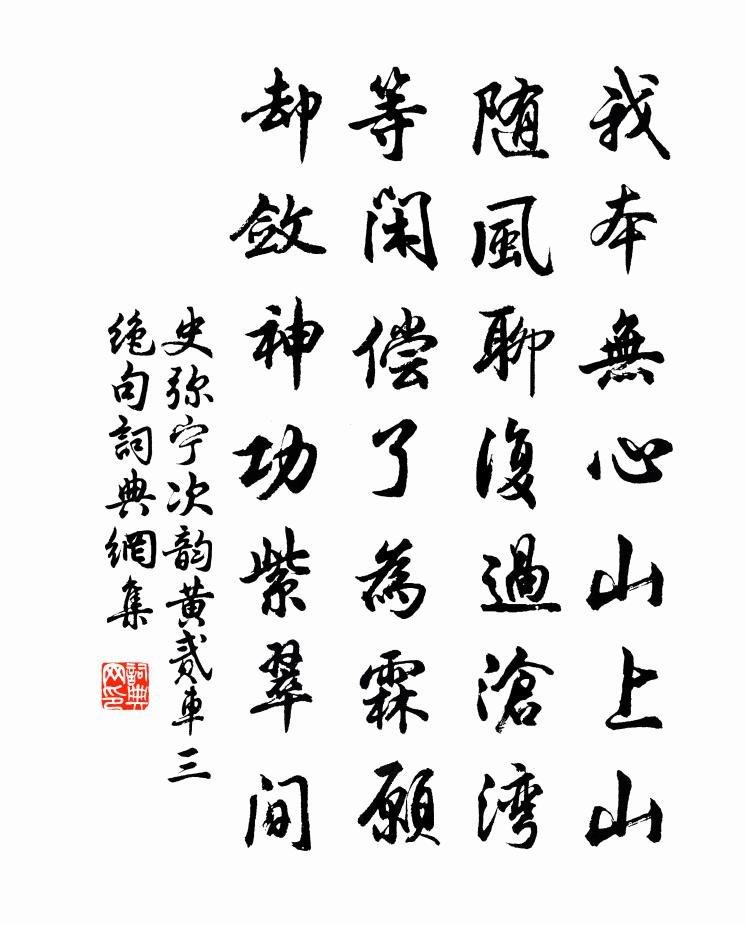 我本無心山上山
随風聊復過滄湾
等閑偿了為霖願
却斂神功紫翠间
史弥宁次韵黄贰車三
绝句詞典網集
詞典网印